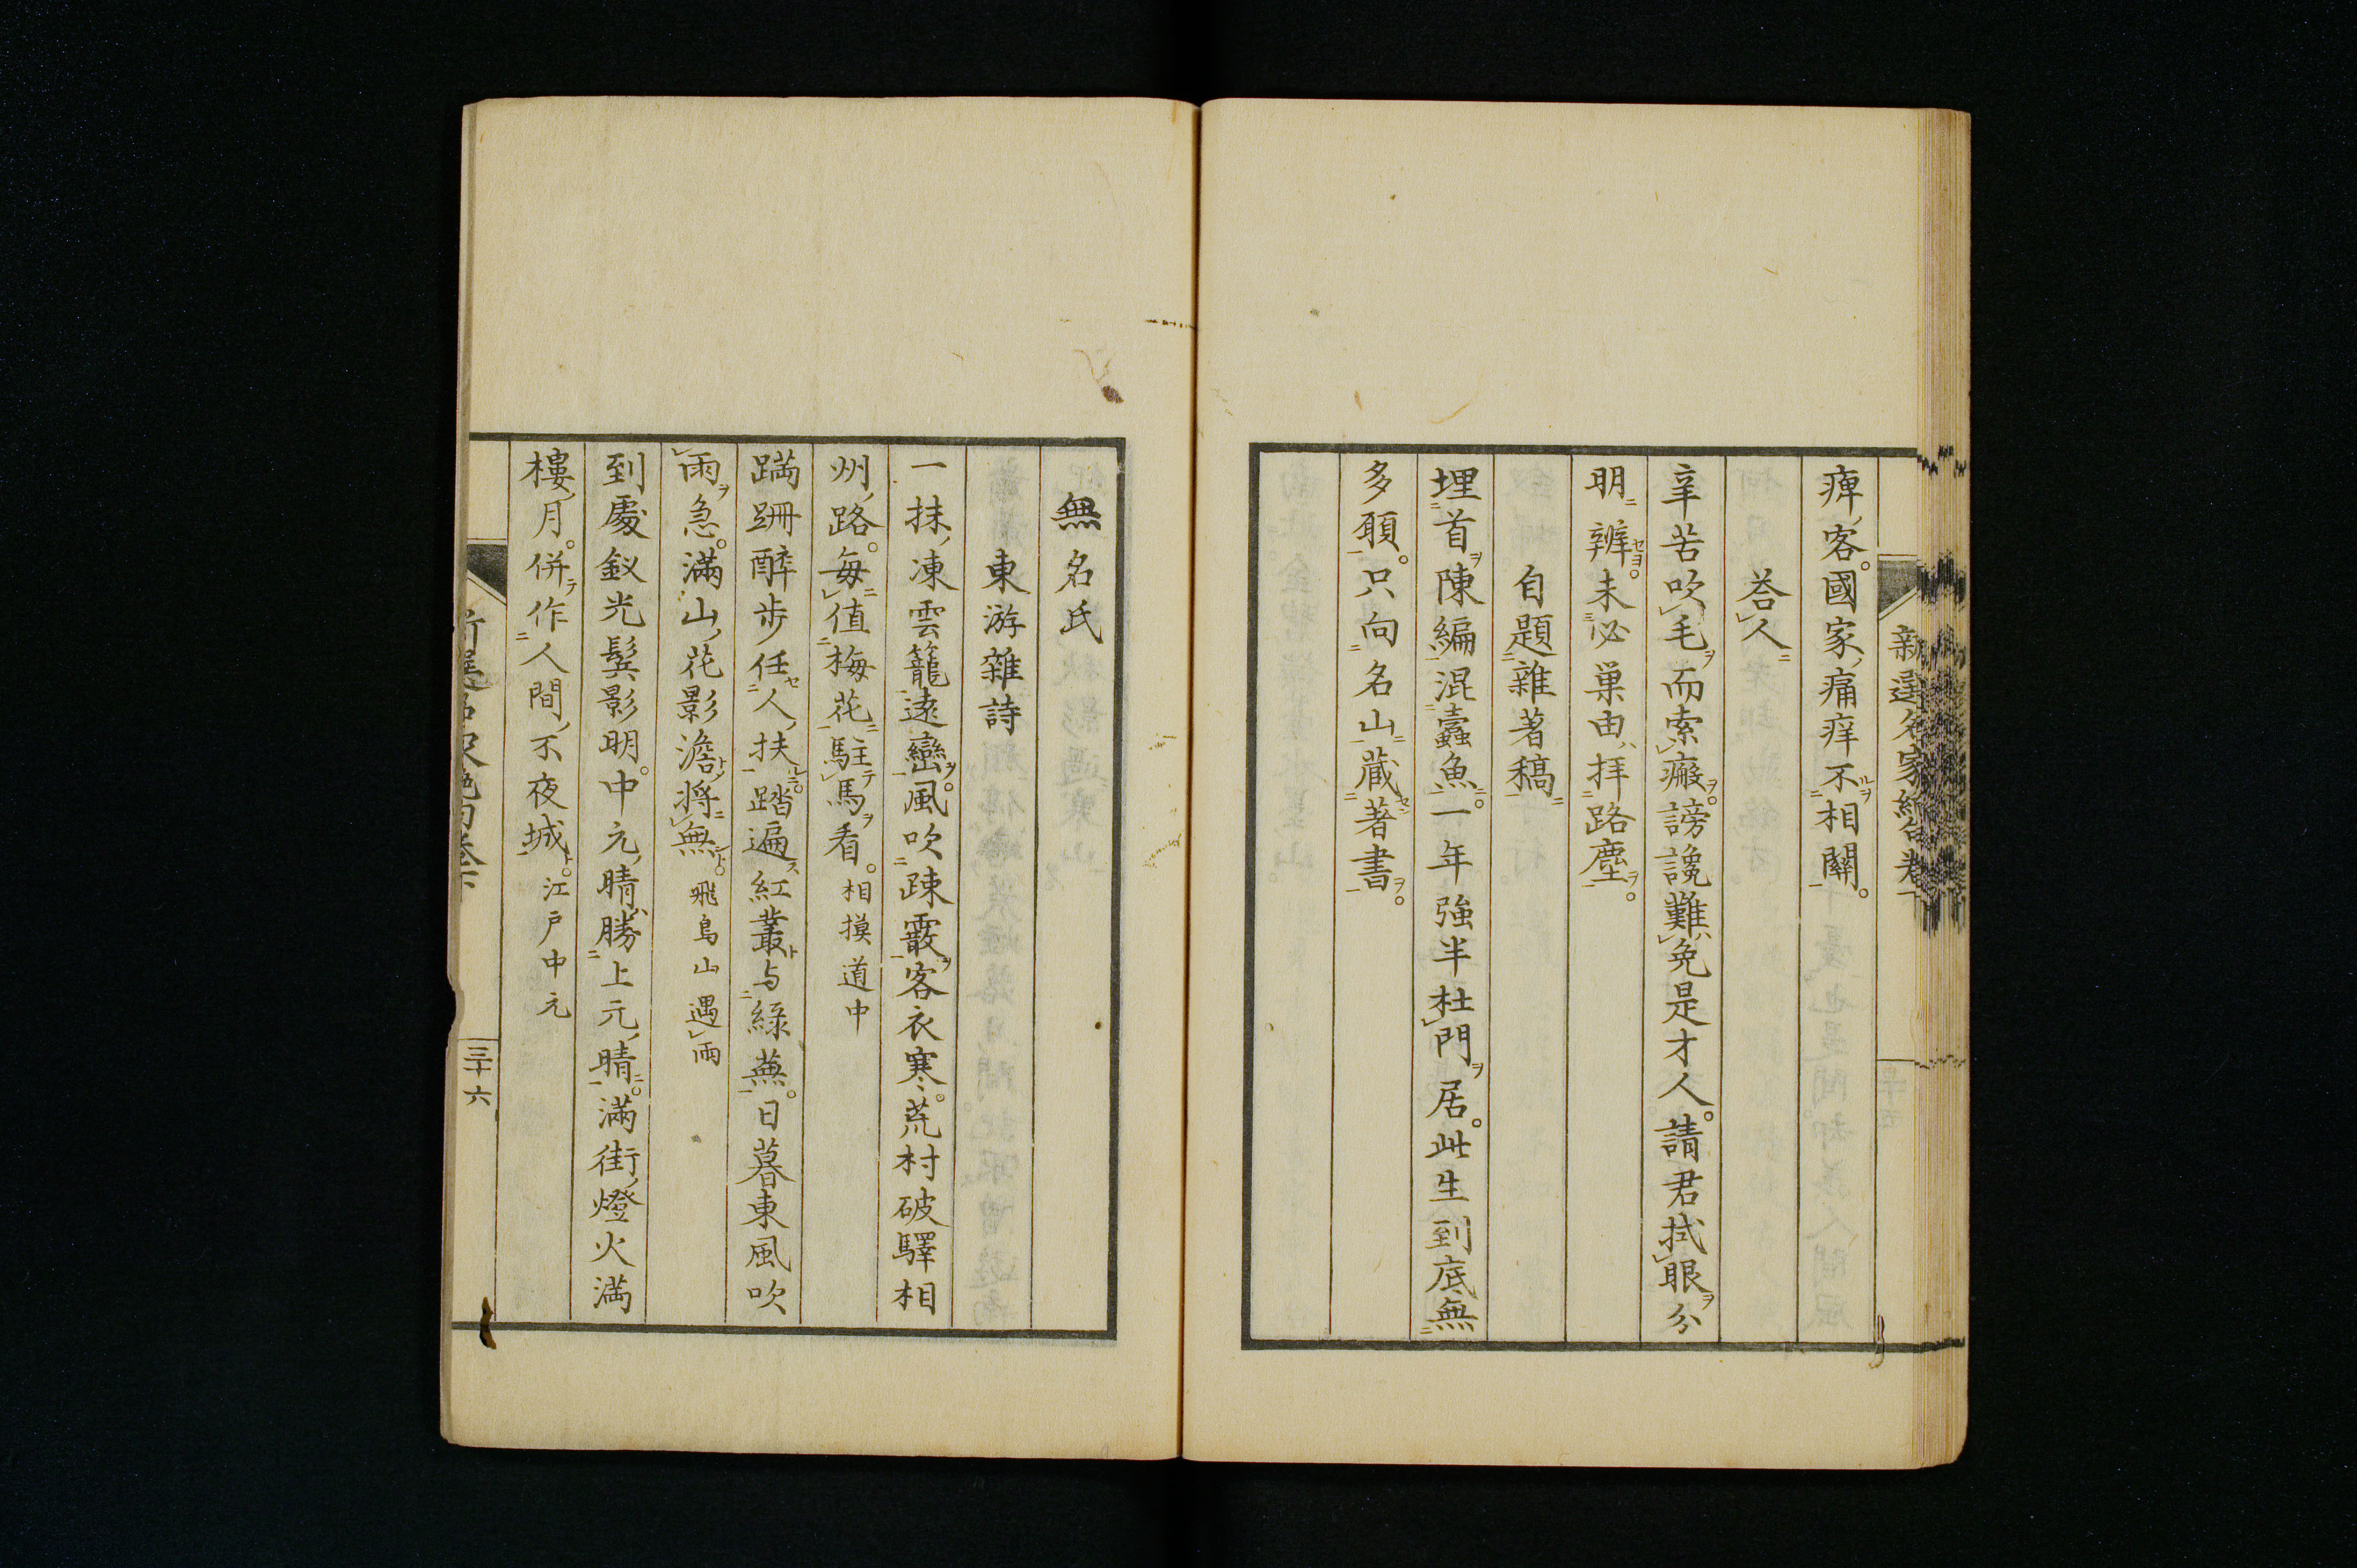 痺客。國家痛痒不相關。
荅人
辛苦吹毛而索瘢。謗讒難免是才人。請君拭眼分
明辨。未必巢由拝路塵。
自題雜著稿
埋首陳編混蠹魚。一年強半杜門居。此生到底無
多願。只向名山藏著書。
無名氏
東游雜詩
一抹凍雲籠遠巒。風吹踈霰客衣寒。荒村破驛相
州路。毎値梅花駐馬看。相摸道中
蹣跚醉歩任人扶。踏遍紅叢与緑蕪。日暮東風吹
雨急。滿山花影澹將無。飛鳥山遇雨
到處釵光鬂影明。中元晴勝上元晴。滿街燈火滿
樓月。併作人間不夜城。江戸中元
三十六